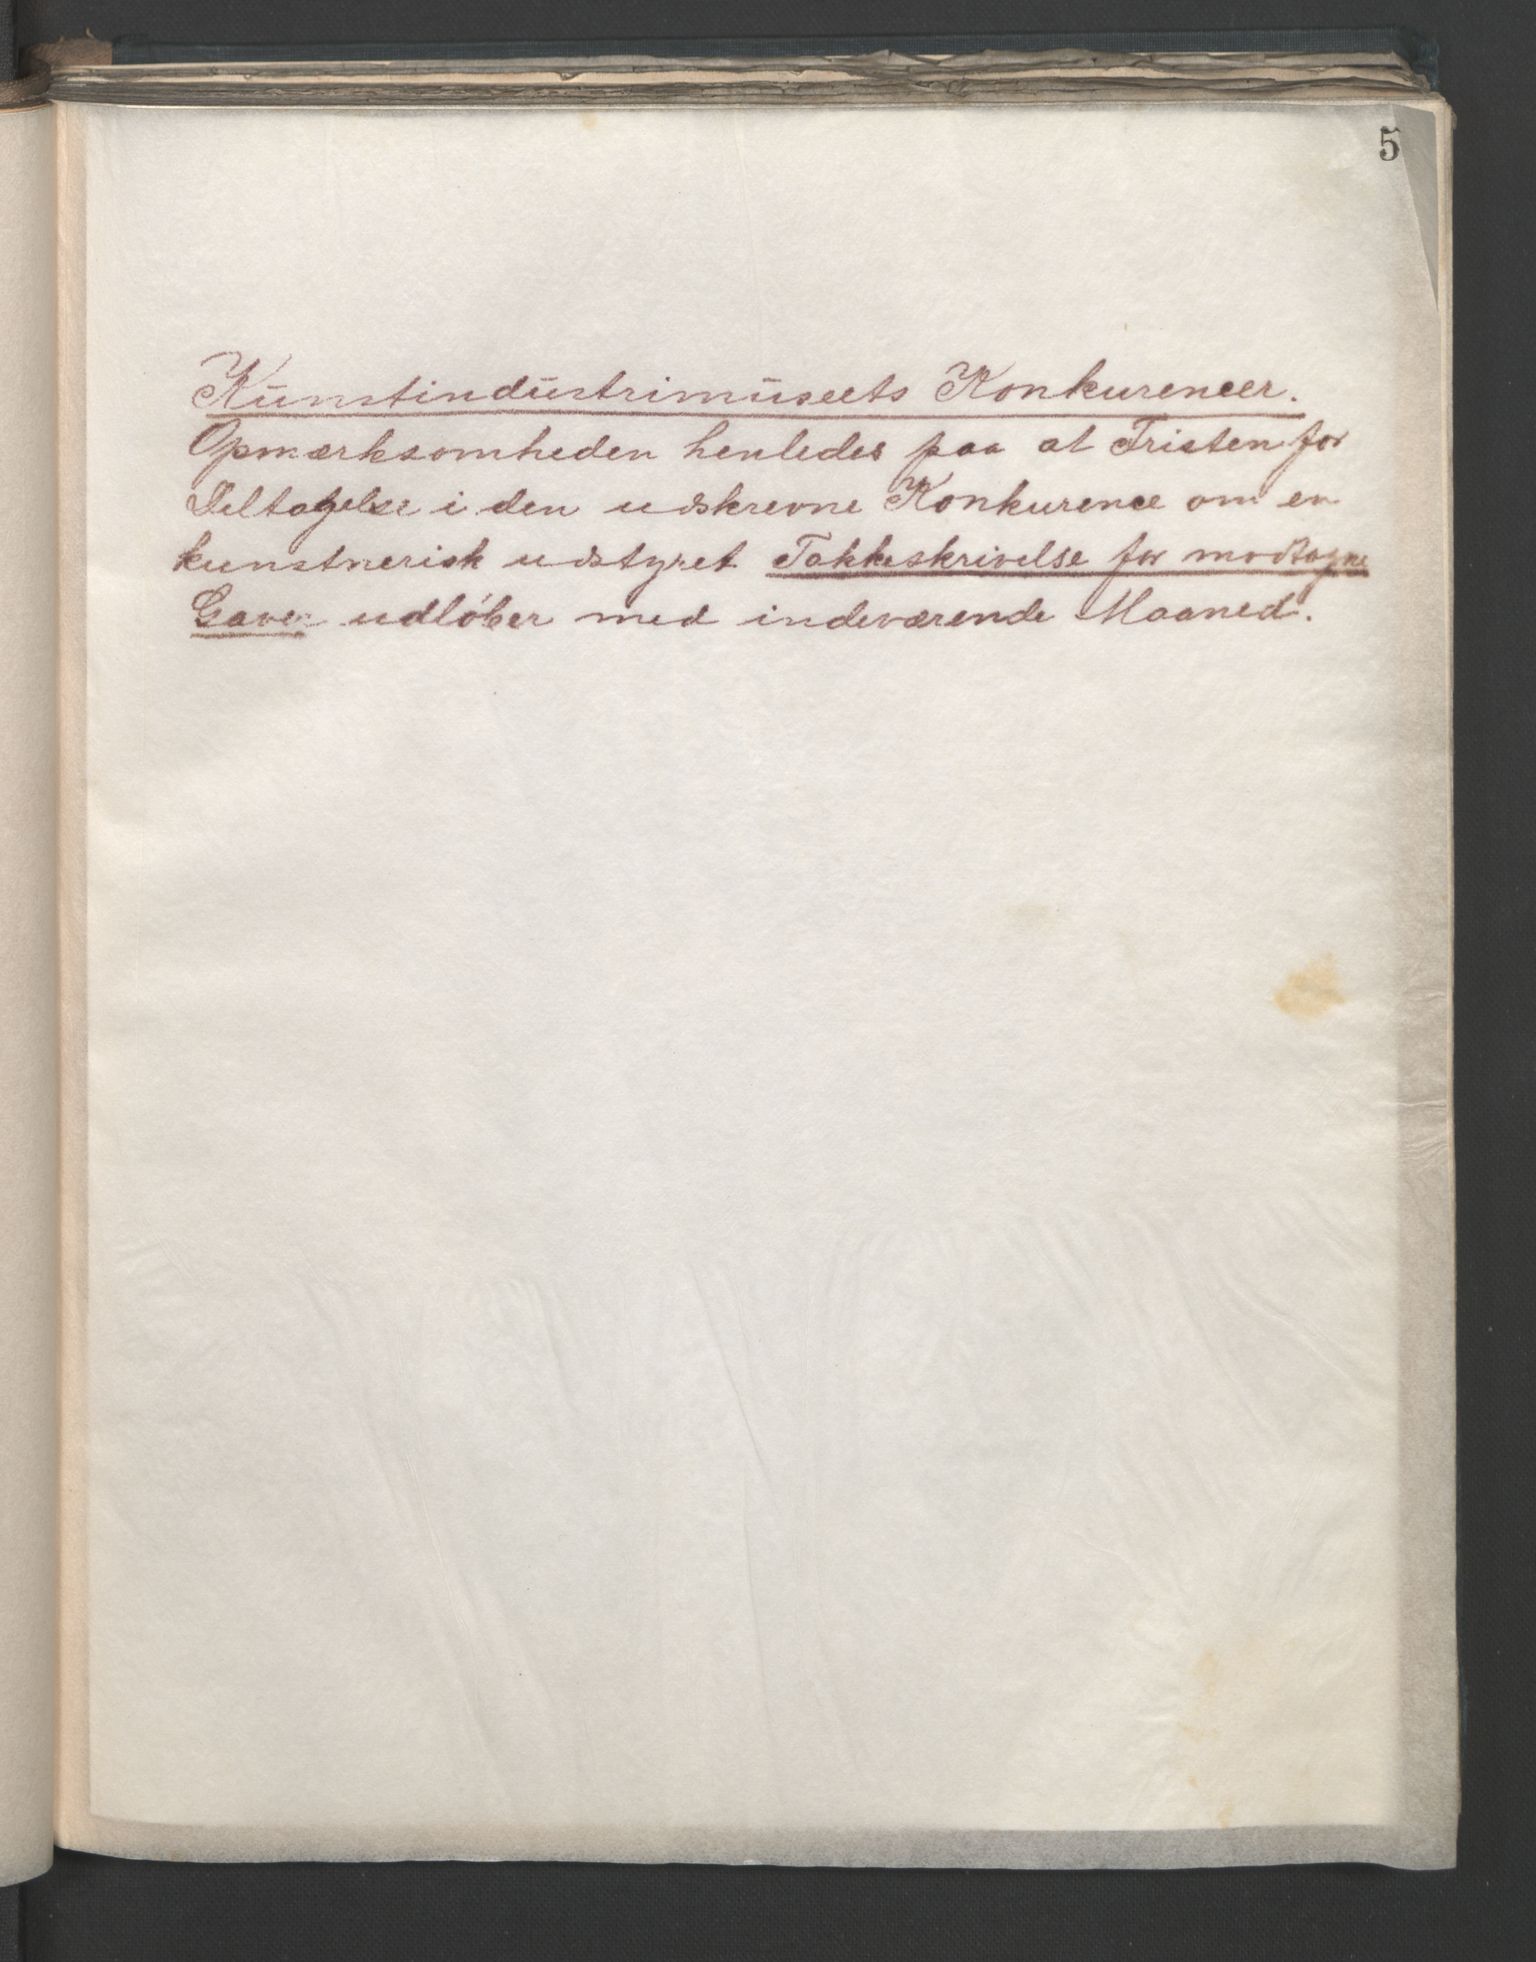 5
Kunstindustrimuseets Konkurencer.
Opmærksomheden henledes paa at Fristen for
Deltagelse i den udskrevne Konkurence om en
kunstnerisk udstyret Takkeskrivelse for modtagne
Gaver udløber med indeværende Maaned.